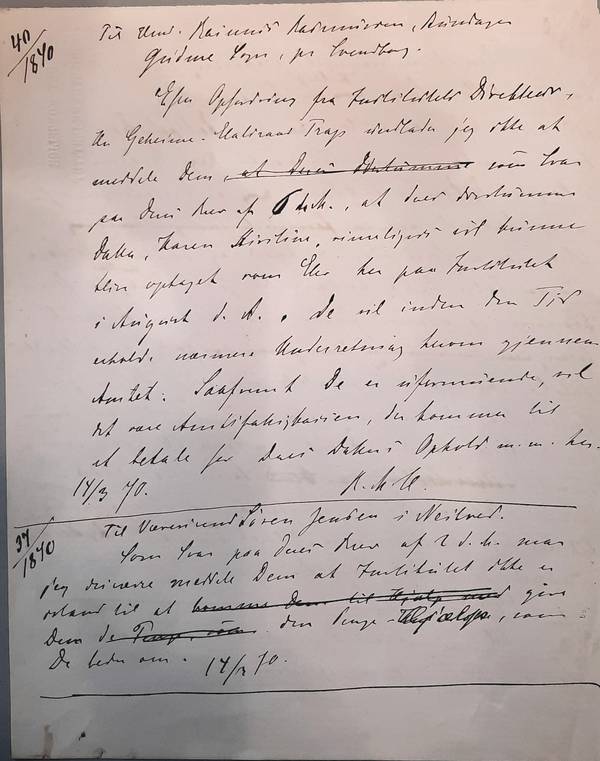 40/1870
Til Hmd. Rasmus Rasmussen,
Gudme Sogn, pr Svendborg.
Efter Opfordring fra Instituttets Direkteur,
Hr Geheime-Etatsraad Trap undlader jeg ikke at
meddele Dem, at Deres som Svar
paa Deres Brev af 6 d.M., at Deres døvstumme
Datter, Karen Kirstine, rimeligvis vil kunne
blive optaget som Elev her paa Instituttet
i August d. A. De vil inden den Tid
erholde nærmere Underretning herom gjennem
Amtet. Saafremt De er uformuende, vil
det være Amtsfattigkassen, der kommer til
at betale for Deres Datters Ophold m.m. her.
14/3 70.
37/1870
Til Søren Jensen i
Som Svar paa Deres Brev af 2 d.M. maa
jeg desværre meddele Dem at Instituttet ikke er
istand til at komme Dem til Hjælp med give
Dem de Penge, som den Penge-Hjælp, som
De beder om. 14/3 70.